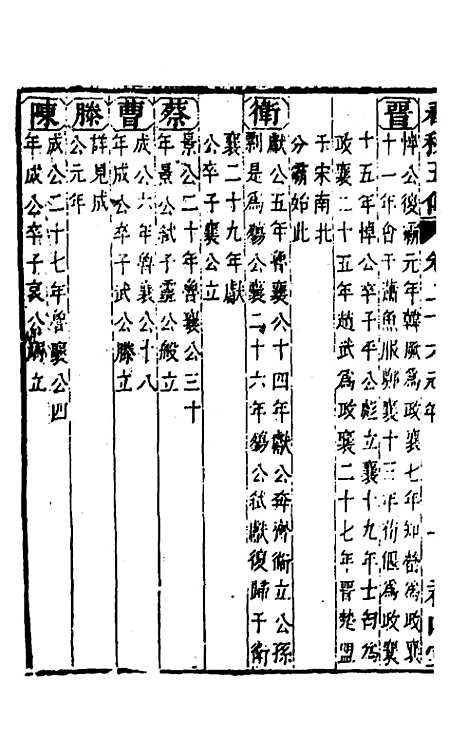 晉
悼公復霸元年韓厥爲政襄七年知罃爲政襄
十一年會于蕭魚服鄭襄十三年荀偃爲政襄
十五年悼公卒子平公彪立襄十九年士匄爲
政襄二十五年趙武爲政襄二十七年晉楚盟
于宋南北
分霸始此
衛
獻公五年魯襄公十四年獻公奔齊衛立公孫
剽是爲殤公襄二十六年殤公弑獻復歸于衛
襄二十九年獻
公卒子襄公立
蔡
景公二十年魯襄公三十
年景公弑子靈公般立
曹
成公六年魯襄公十八
年成公卒子武公滕立
滕
詳見成
公元年
陳
成公二十七年魯襄公四
年成公卒子哀公溺立